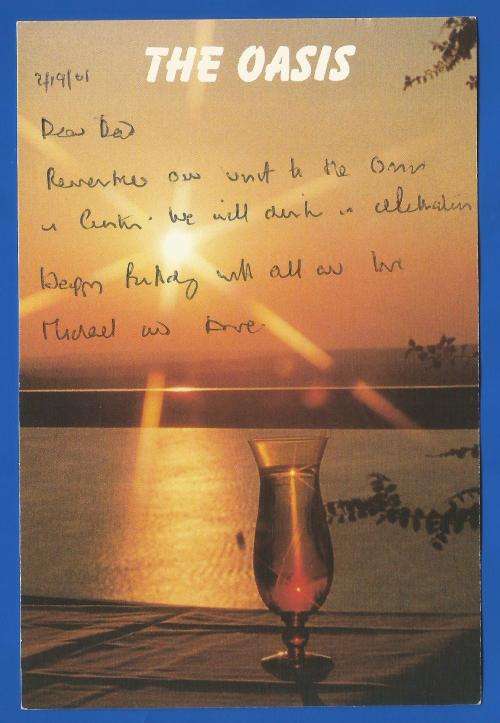 THE OASIS
2/19/01
Dear Dad
Remember our visit to the Oasis
in We will drink in celebration
Happy Birthday with all our love
Michael and